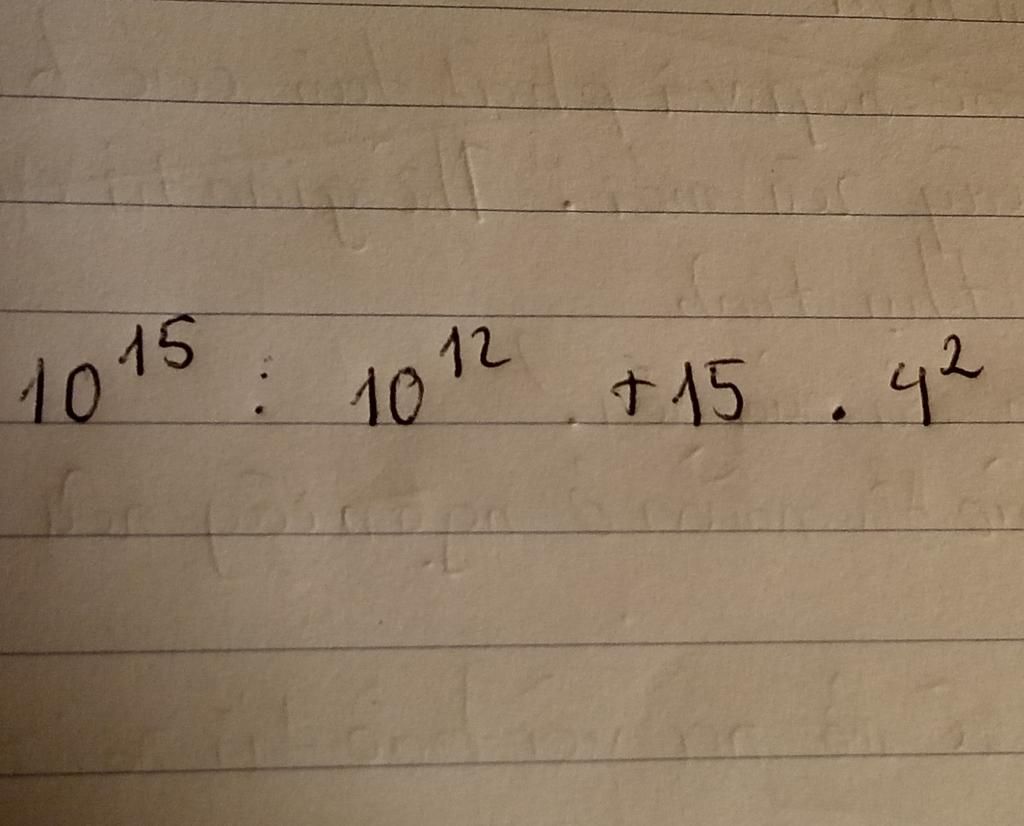 10¹⁵ : 10¹² + 15 . 4²